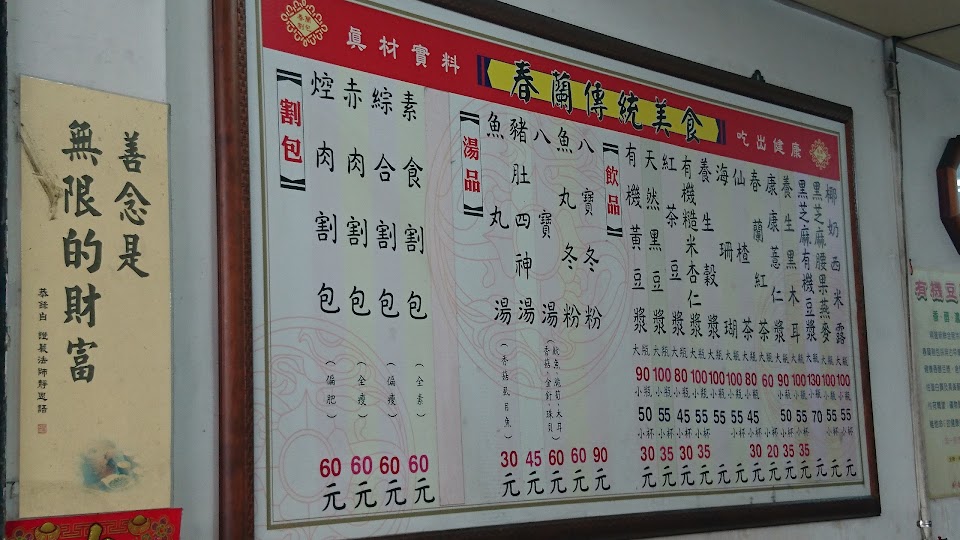 善念是
無限的財富
恭錄自 證嚴法師靜思語
真材實料
春蘭傳統美食
吃出健康
【割包】
焢肉割包(偏肥)60元
赤肉割包(全瘦)60元
綜合割包(偏瘦)60元
素食割包(全素)60元
【湯品】
魚丸湯(香菇虱目魚)30元
豬肚四神湯 45元
八寶湯 60元
(魷魚·脆筍·木耳
香菇·金針·珠貝)
魚丸冬粉 60元
八寶冬粉 90元
【飲品】
有機黃豆漿 大瓶90 小瓶50 小杯30元
天然黑豆漿 大瓶100 小瓶55 小杯35元
紅茶豆漿 大瓶80 小瓶45 小杯30元
有機糙米杏仁漿 大瓶100 小瓶55 小杯35元
養生穀漿 大瓶100 小瓶55元
海珊瑚 大瓶100 小瓶55元
仙楂茶 大瓶80 小瓶45 小杯30元
春蘭紅茶 大瓶60 小杯20元
康康薏仁漿 大瓶90 小瓶50 小杯35元
養生黑木耳 大瓶100 小瓶55 小杯35元
黑芝麻有機豆漿 大瓶130 小瓶70元
黑芝麻腰果燕麥 大瓶100 小瓶55元
椰奶西米露 大瓶100 小瓶55元
有機豆